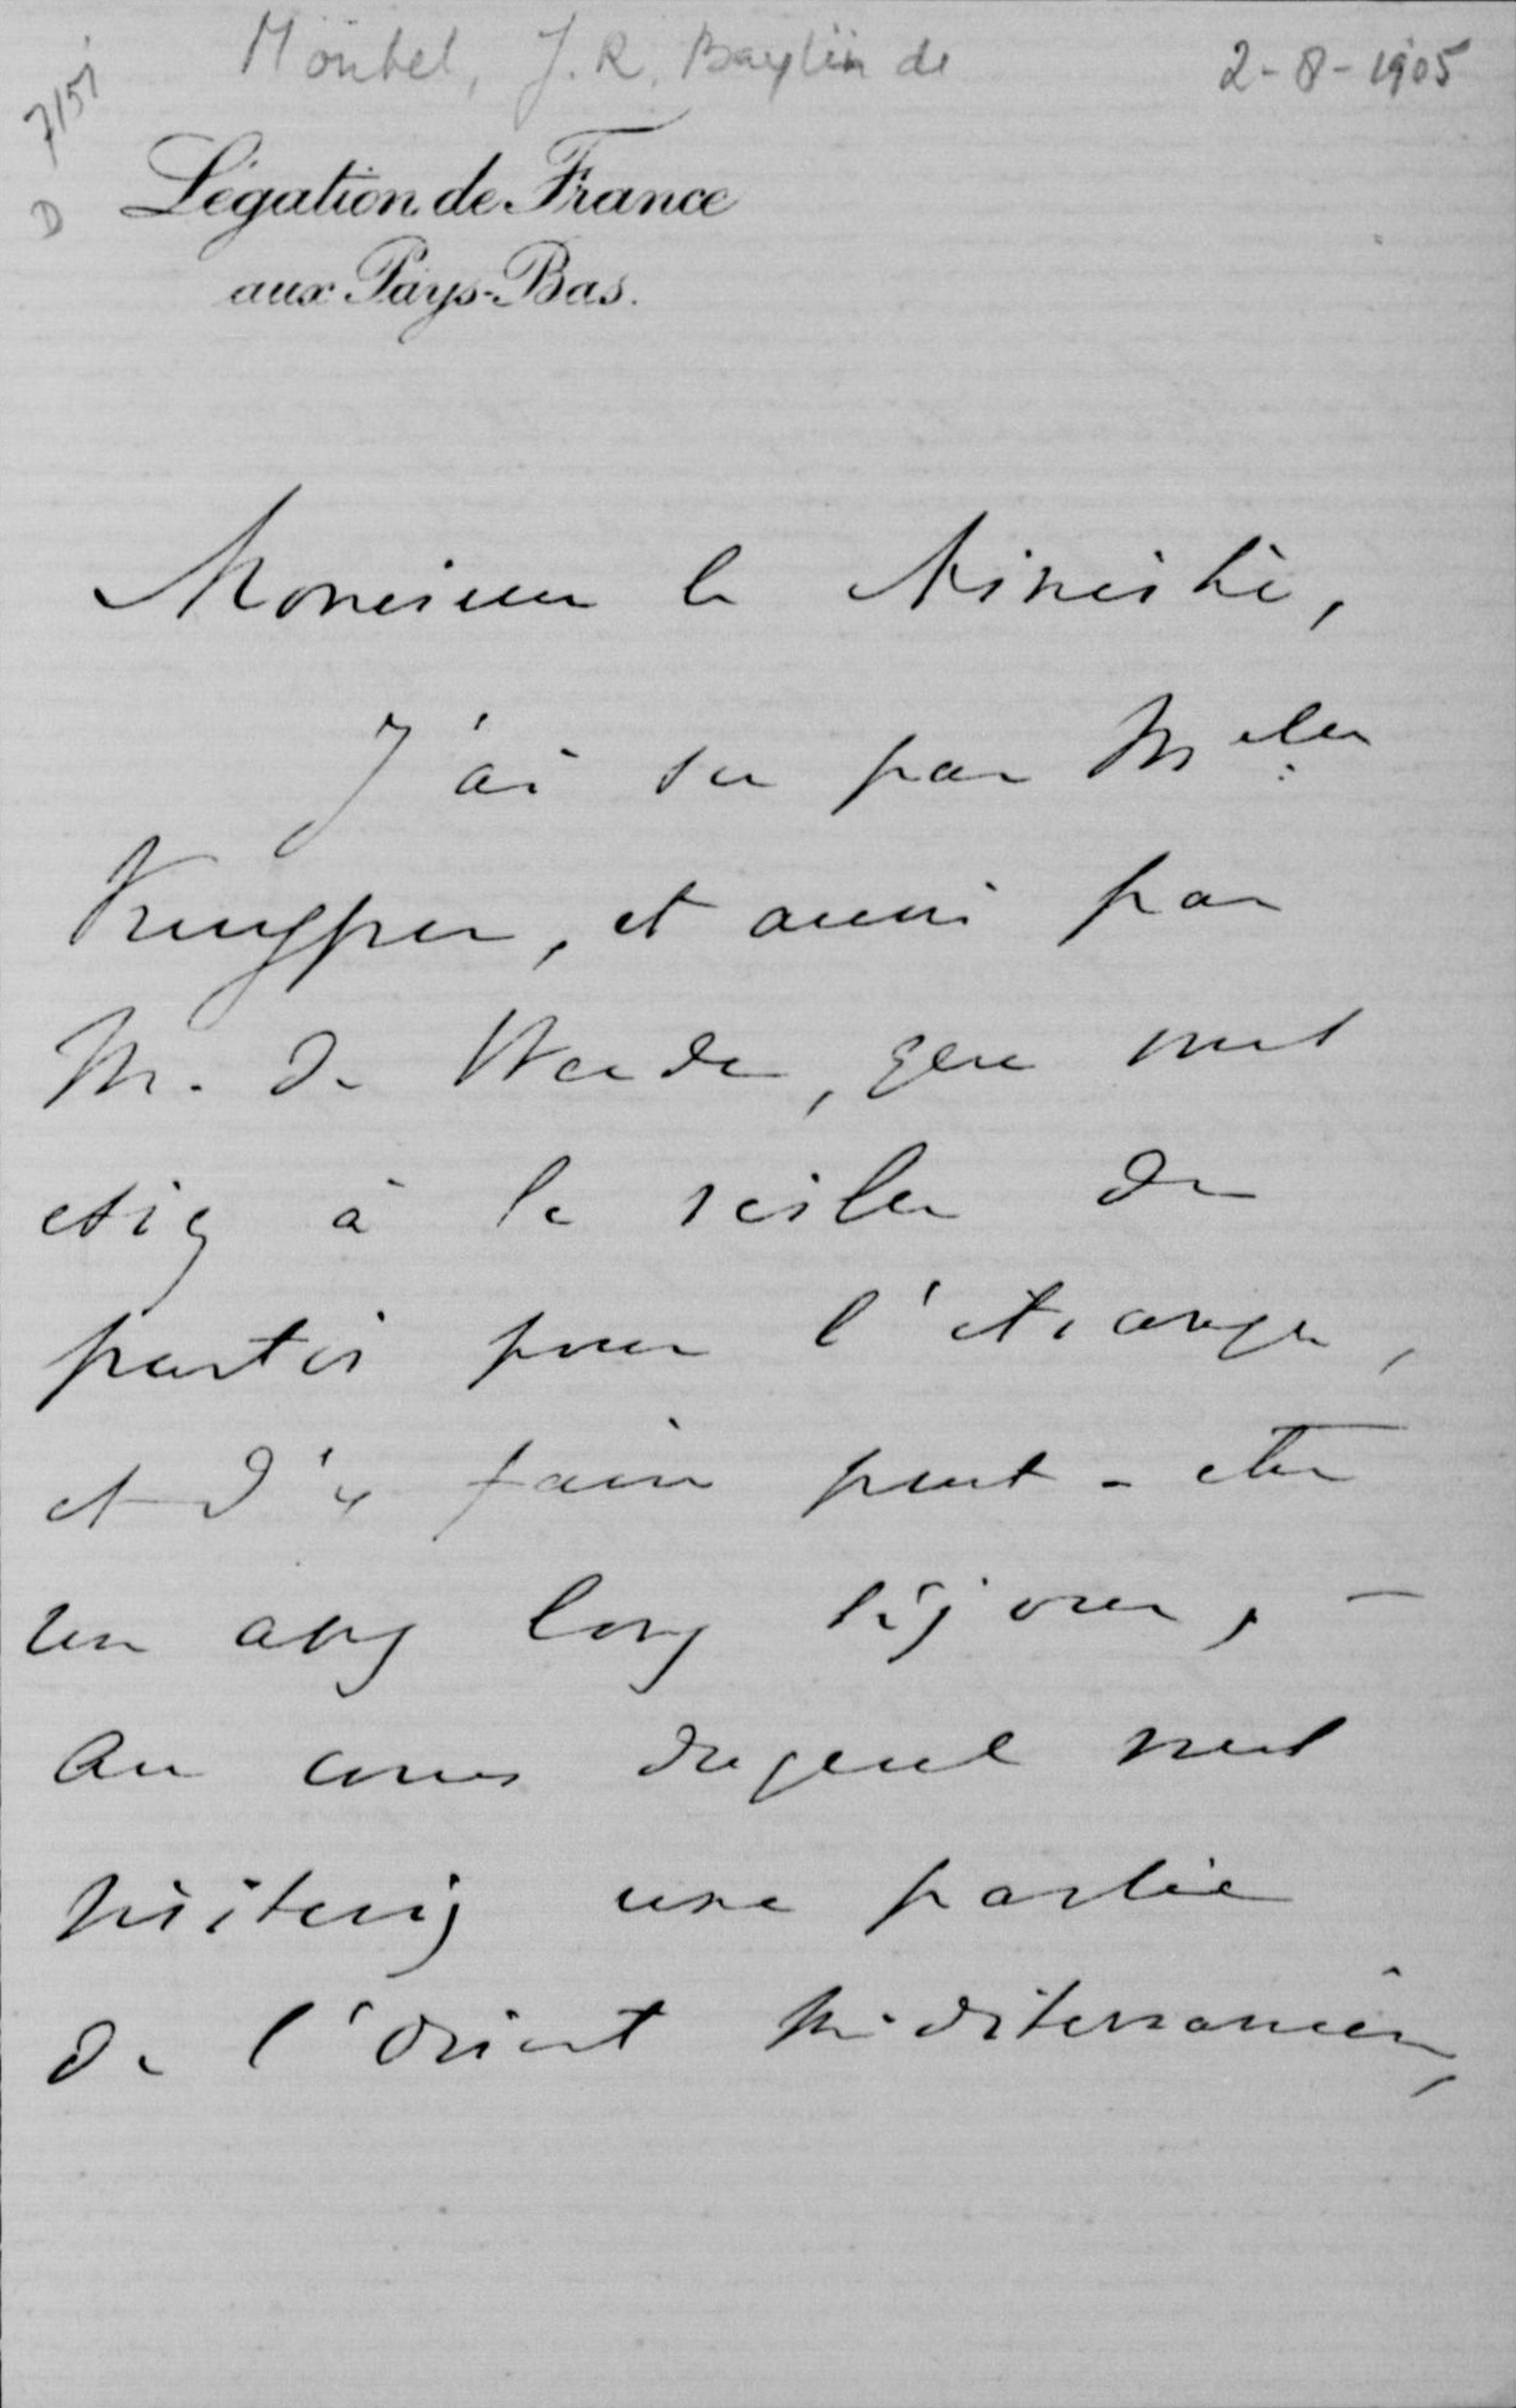 Monbel, J.R. Baylin de 2-8-1905
7151
D
Légation de France
aux Pays-Bas.
Monsieur le Ministre,
J'ai su par Melles
Kuyper, et aussi par
M. de Weede, que vous
étiez à la veille de
partir pour l'étranger,
et d'y faire peut-être
un assez long séjour, –
au cours duquel vous
visiteriez une partie
de l'Orient Méditerranéen,